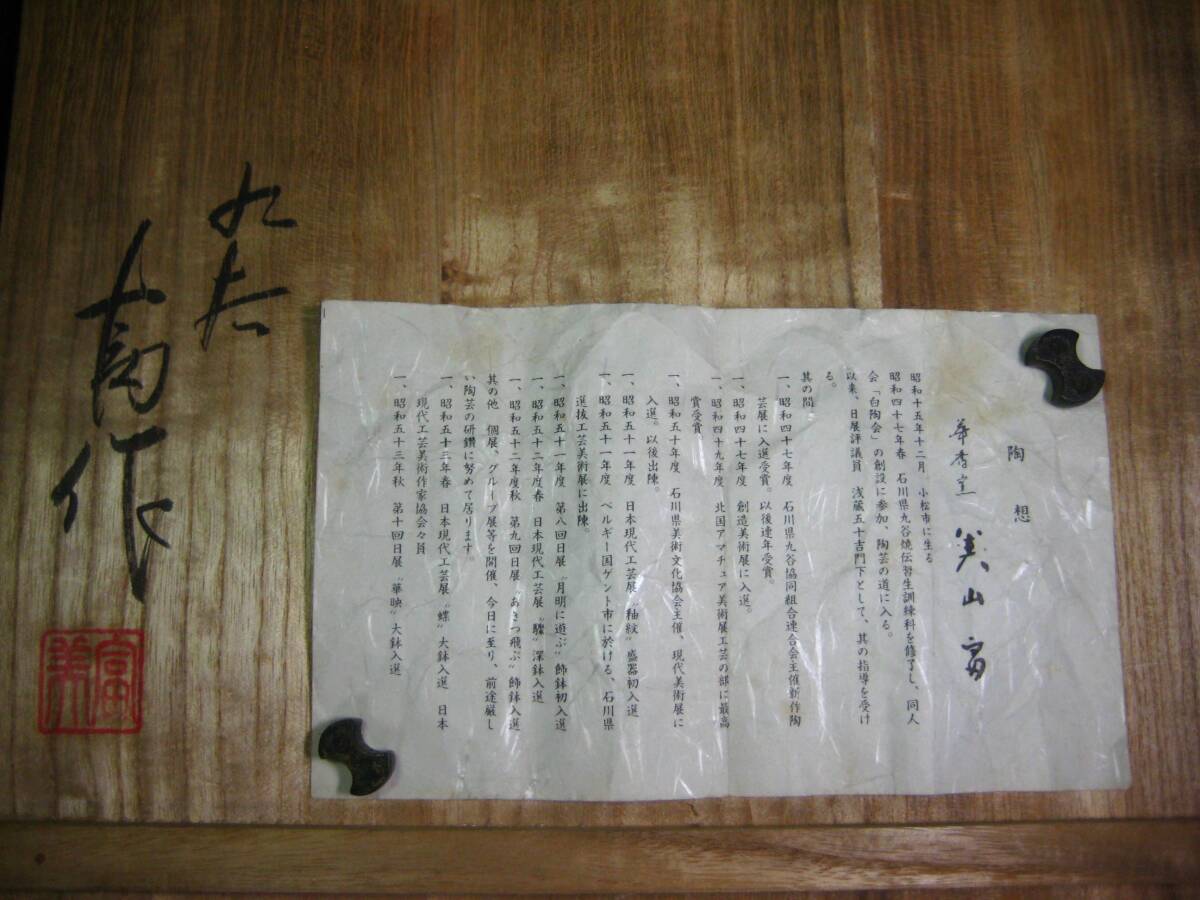 陶想
華香窯 美山富
昭和十五年十二月、小松市に生る
昭和四十七年春 石川県九谷焼伝習生訓練科を修了し、同人
会「白陶会」の創設に参加、陶芸の道に入る。
以来、日展評議員 浅蔵五十吉門下として、其の指導を受け
る。
其の間
一、昭和四十七年度 石川県九谷協同組合連合会主催新作陶
芸展に入選受賞。以後連年受賞。
一、昭和四十七年度 創造美術展に入選。
一、昭和四十九年度 北国アマチュア美術展工芸の部に最高
賞受賞
一、昭和五十年度 石川県美術文化協会主催、現代美術展に
入選。以後出陳。
一、昭和五十一年度 日本現代工芸展〝釉紋〟盛器初入選
一、昭和五十一年度 ベルギー国ゲント市に於ける、石川県
選抜工芸美術展に出陳。
一、昭和五十一年度 第八回日展〝月明に遊ぶ〟飾鉢初入選
一、昭和五十二年度春 日本現代工芸展〝驟〟深鉢入選
一、昭和五十二年度秋 第九回日展〝あきつ飛ぶ〟飾鉢入選
其の他 個展、グループ展等を開催、今日に至り、前途厳し
い陶芸の研鑽に努めて居ります。
一、昭和五十三年春 日本現代工芸展〝蝶〟大鉢入選 日本
現代工芸美術作家協会々員
一、昭和五十三年秋 第十回日展〝華映〟大鉢入選
九谷
富作
富美